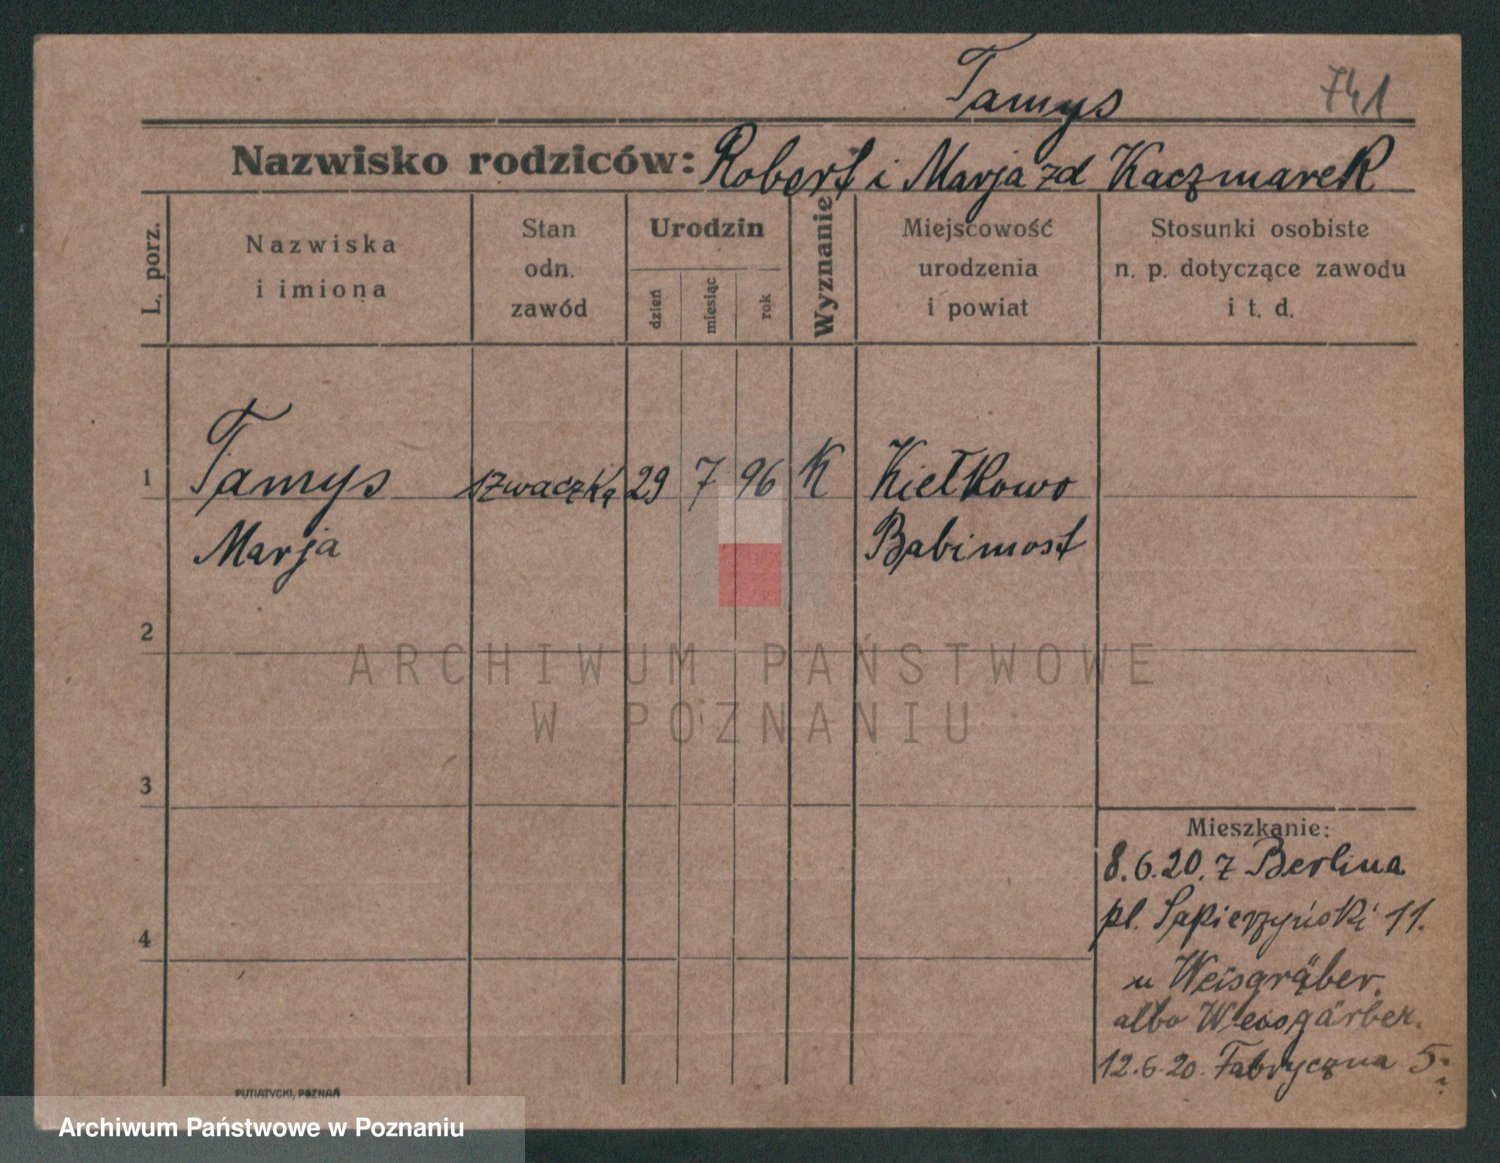 Tamys
741
Nazwisko rodziców: Robert i Marja zd Kaczmarek
L. porz.
Nazwiska
i imiona
Stan
odn.
zawód
Urodzin
dzień
miesiąc
rok
Wyznanie
Miejscowość
urodzenia
i powiat
Stosunki osobiste
n. p. dotyczące zawodu
i t. d.
1 Tamys szwaczka 29 7 96 K Kiełkowo
Marja Babimost
2
ARCHIWUM PAŃSTWOWE
W POZNANIU
3
Mieszkanie:
8.6.20. z Berlina
pl. Sapierzyński 11.
4
u Weisgräber.
albo Weisgärber.
12.6.20. Fabryczna 5
PUTIATYCKI, POZNAŃ
Archiwum Państwowe w Poznaniu